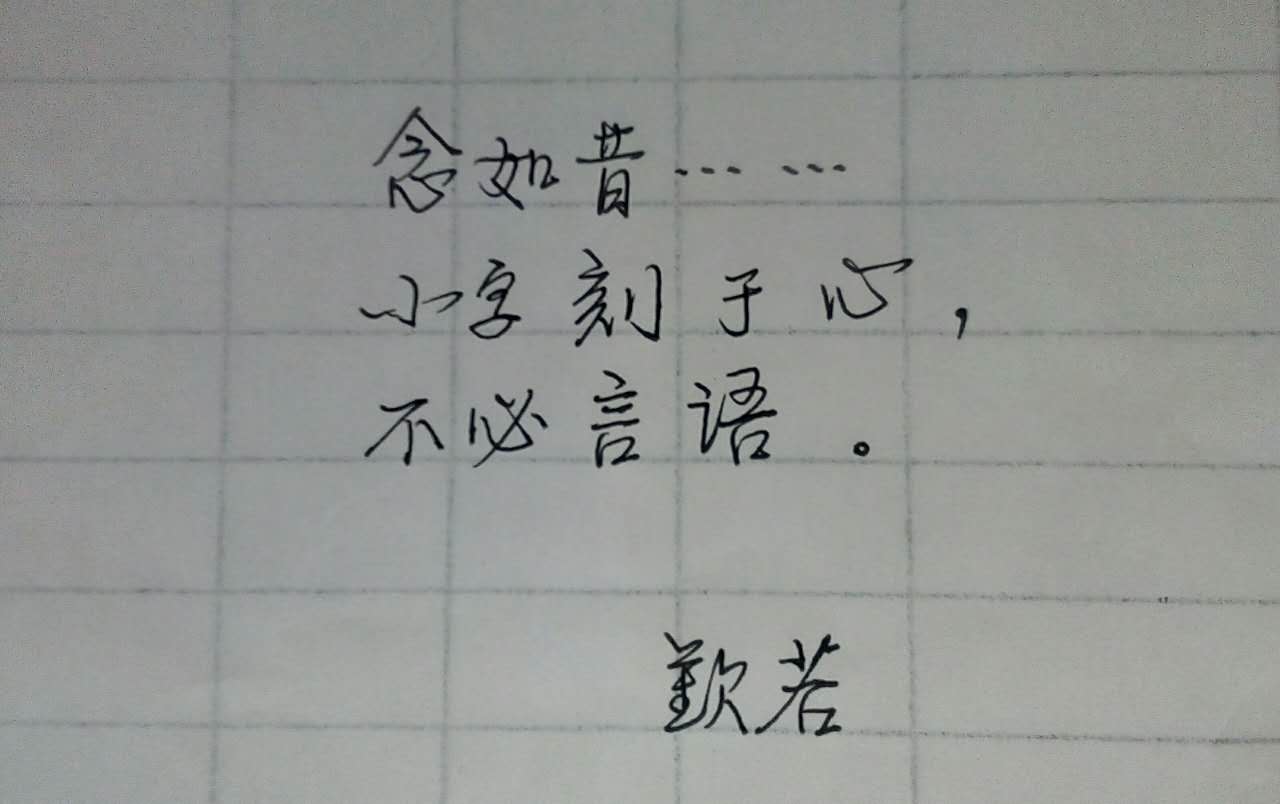 念如昔……
小字刻于心，
不必言语。
歎若